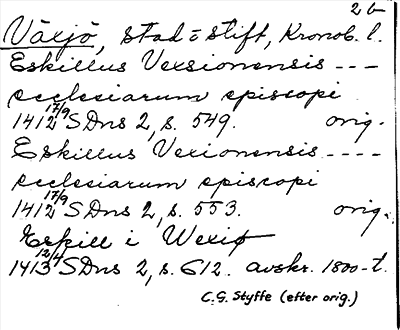 2 b
Växjö, stad o stift, Kronob. l.
Eskillus Vexsionensis ---
ecclesiarum episcopi
1412 17/9 SDns 2, s. 549. orig.
Eskillus Vexionensis ----
ecclesiarum episcopi
1412 17/9 SDns 2, s. 553. orig.
Eskill i Wexiø
1413 12/4 SDns 2, s. 612. avskr. 1800-t.
C.G. Styffe (efter orig.)